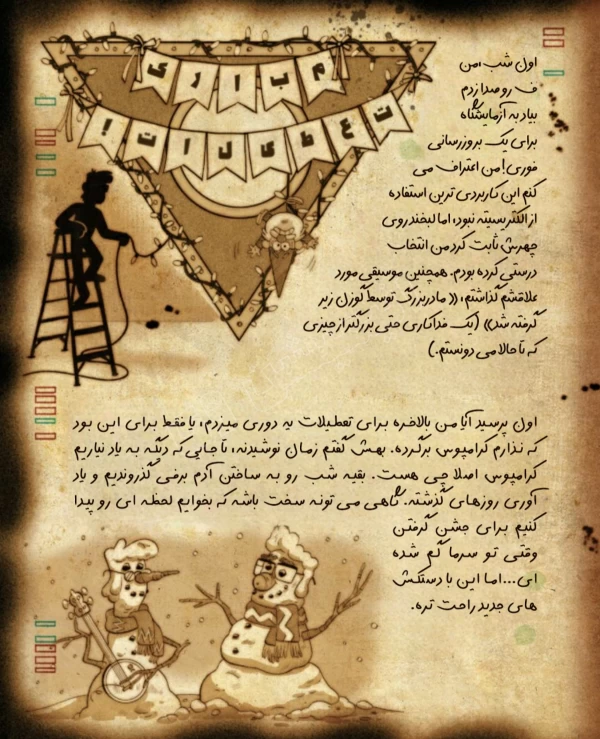 مبارک
تعطیلات!
اول شب، من
ف رو صدا زدم
بیاد به آزمایشگاه
برای یک بروزرسانی
فوری! من اعتراف می
کنم این کاربردی ترین استفاده
از الکتریسیته نبود، اما لبخند روی
چهرش ثابت کرد من انتخاب
درستی کرده بودم. همچنین موسیقی مورد
علاقشم گذاشتم، «مادربزرگ توسط گوزن زیر
گرفته شد» (یک فداکاری حتی بزرگتر از چیزی
که تا حالا می دونستم.)
اول پرسید آیا من بالاخره برای تعطیلات یه دوری میزدم، یا فقط برای این بود
که نذارم کرامپوس برگرده. بهش گفتم زمان نوشیدنه، تا جایی که دیگه به یاد نیاریم
کرامپوس اصلا چی هست. بقیه شب رو به ساختن آدم برفی گذروندیم و یاد
آوری روزهای گذشته. گاهی می تونه سخت باشه که بخوایم لحظه ای رو پیدا
کنیم برای جشن گرفتن
وقتی تو سرما گم شده
ای...اما این با دستکش
های جدید راحت تره.